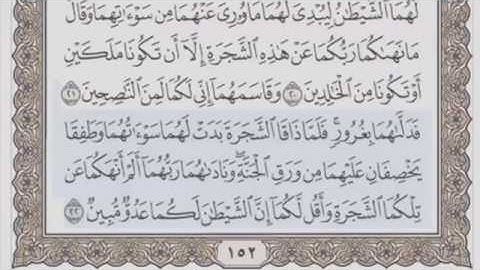 لَهُمَا ٱلشَّيْطَـٰنُ لِيُبْدِىَ لَهُمَا مَا وُۥرِىَ عَنْهُمَا مِن سَوْءَٰتِهِمَا وَقَالَ
مَا نَهَىٰكُمَا رَبُّكُمَا عَنْ هَـٰذِهِ ٱلشَّجَرَةِ إِلَّآ أَن تَكُونَا مَلَكَيْنِ
أَوْ تَكُونَا مِنَ ٱلْخَـٰلِدِينَ ٢٠ وَقَاسَمَهُمَآ إِنِّى لَكُمَا لَمِنَ ٱلنَّـٰصِحِينَ ٢١
فَدَلَّىٰهُمَا بِغُرُورٍ ۚ فَلَمَّا ذَاقَا ٱلشَّجَرَةَ بَدَتْ لَهُمَا سَوْءَٰتُهُمَا وَطَفِقَا
يَخْصِفَانِ عَلَيْهِمَا مِن وَرَقِ ٱلْجَنَّةِ ۖ وَنَادَىٰهُمَا رَبُّهُمَآ أَلَمْ أَنْهَكُمَا عَن
تِلْكُمَا ٱلشَّجَرَةِ وَأَقُل لَّكُمَآ إِنَّ ٱلشَّيْطَـٰنَ لَكُمَا عَدُوٌّ مُّبِينٌ ٢٢
١٥٢